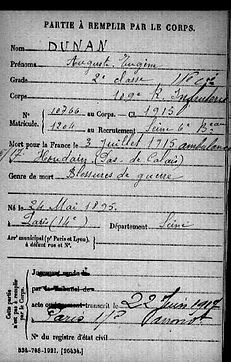 PARTIE À REMPLIR PAR LE CORPS.
Nom DUNAN
Prénoms Auguste Eugène
Grade 2e classe
Corps 109e R. Infanterie
N° 10766 au Corps. — Cl. 1915
Matricule. 1204 au Recrutement Seine 6e Bau
Mort pour la France le 3 Juillet 1915 ambulance
(Pas de Calais)
Genre de mort Blessures de guerre
Né le 24 Mai 1895
à Paris (14e) Département Seine
Arrt municipal (pr Paris et Lyon),
à défaut rue et N°.
Cette partie
n'est pas à remplir
par le Corps.
Jugement rendu le
par le Tribunal de
acte ou jugement transcrit le 22 Juin 1917
à Paris
N° du registre d'état civil
534-708-1921. [26434.]